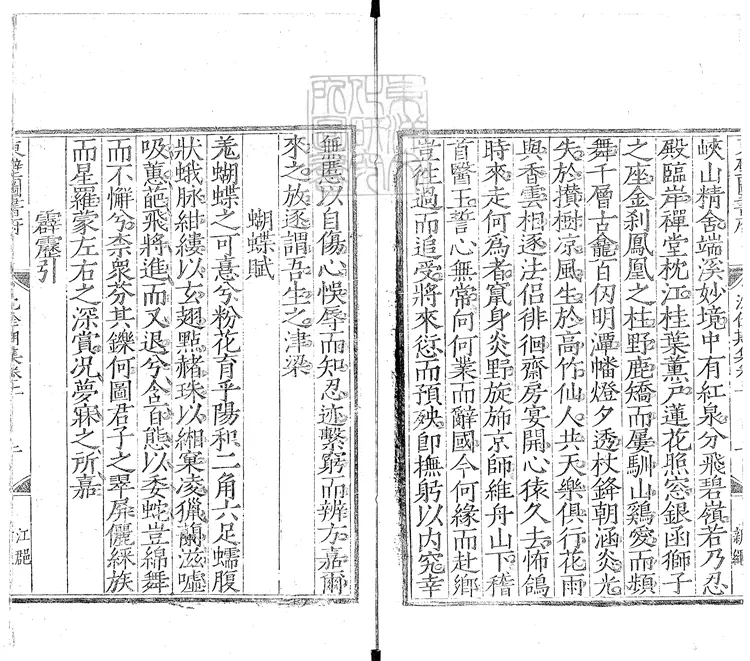 峽山精舍端溪妙境中有紅泉分飛碧嶺若乃忍
殿臨岸禪堂枕江桂葉薰戶蓮花照窓銀函獅子
之座金刹鳳凰之柱野鹿矯而屢馴山鷄愛而頻
舞千層古龕百仞明潭幡燈夕透杖錫朝涵炎光
失於攢樹凉風生於高竹仙人共天樂俱行花雨
與香雲相逐法侣徘徊齋房宴開心猿久去怖鴿
時來走何為者竄身炎野旋旆京師維舟山下稽
首醫王誓心無常何何業而辭國今何緣而赴鄉
豈往過而追受將來愆而預殃即撫躬以内究幸
無慝以自傷心悞辱而知忍迹繫窮而辨方嘉爾
來之放逐謂吾生之津梁
蝴蝶賦
羌蝴蝶之可憙兮粉花育乎陽和二角六足蠕腹
狀蛾脉紺縷以玄翅點赭珠以緗窠凌獵蘭滋噓
吸蕙葩飛將進而又退兮含百態以委蛇豈綿舞
而不懈兮柰衆芬其鑠何圖君子之翠屏儷綵族
而星羅蒙左右之深賞况夢寐之所嘉
霹靂引
東壁圖書府
沈佺期集卷一
江肥